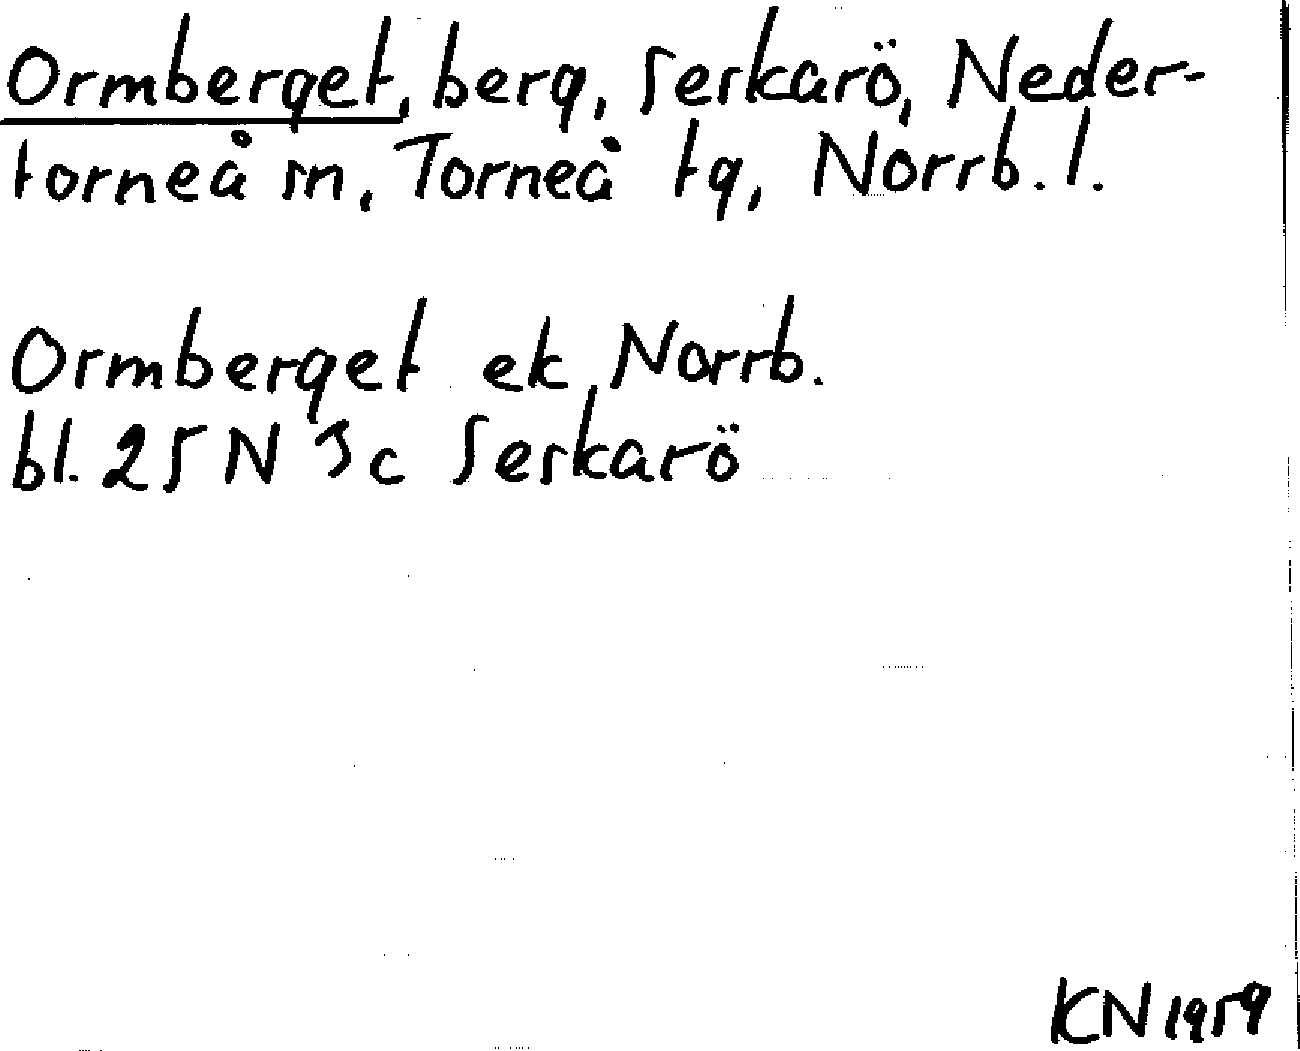 Ormberget, berg, Seskarö, Neder-
torneå sn, Torneå tg, Norrb. l.
Ormberget ek Norrb.
bl. 25 N 3 c Seskarö
KN 1959